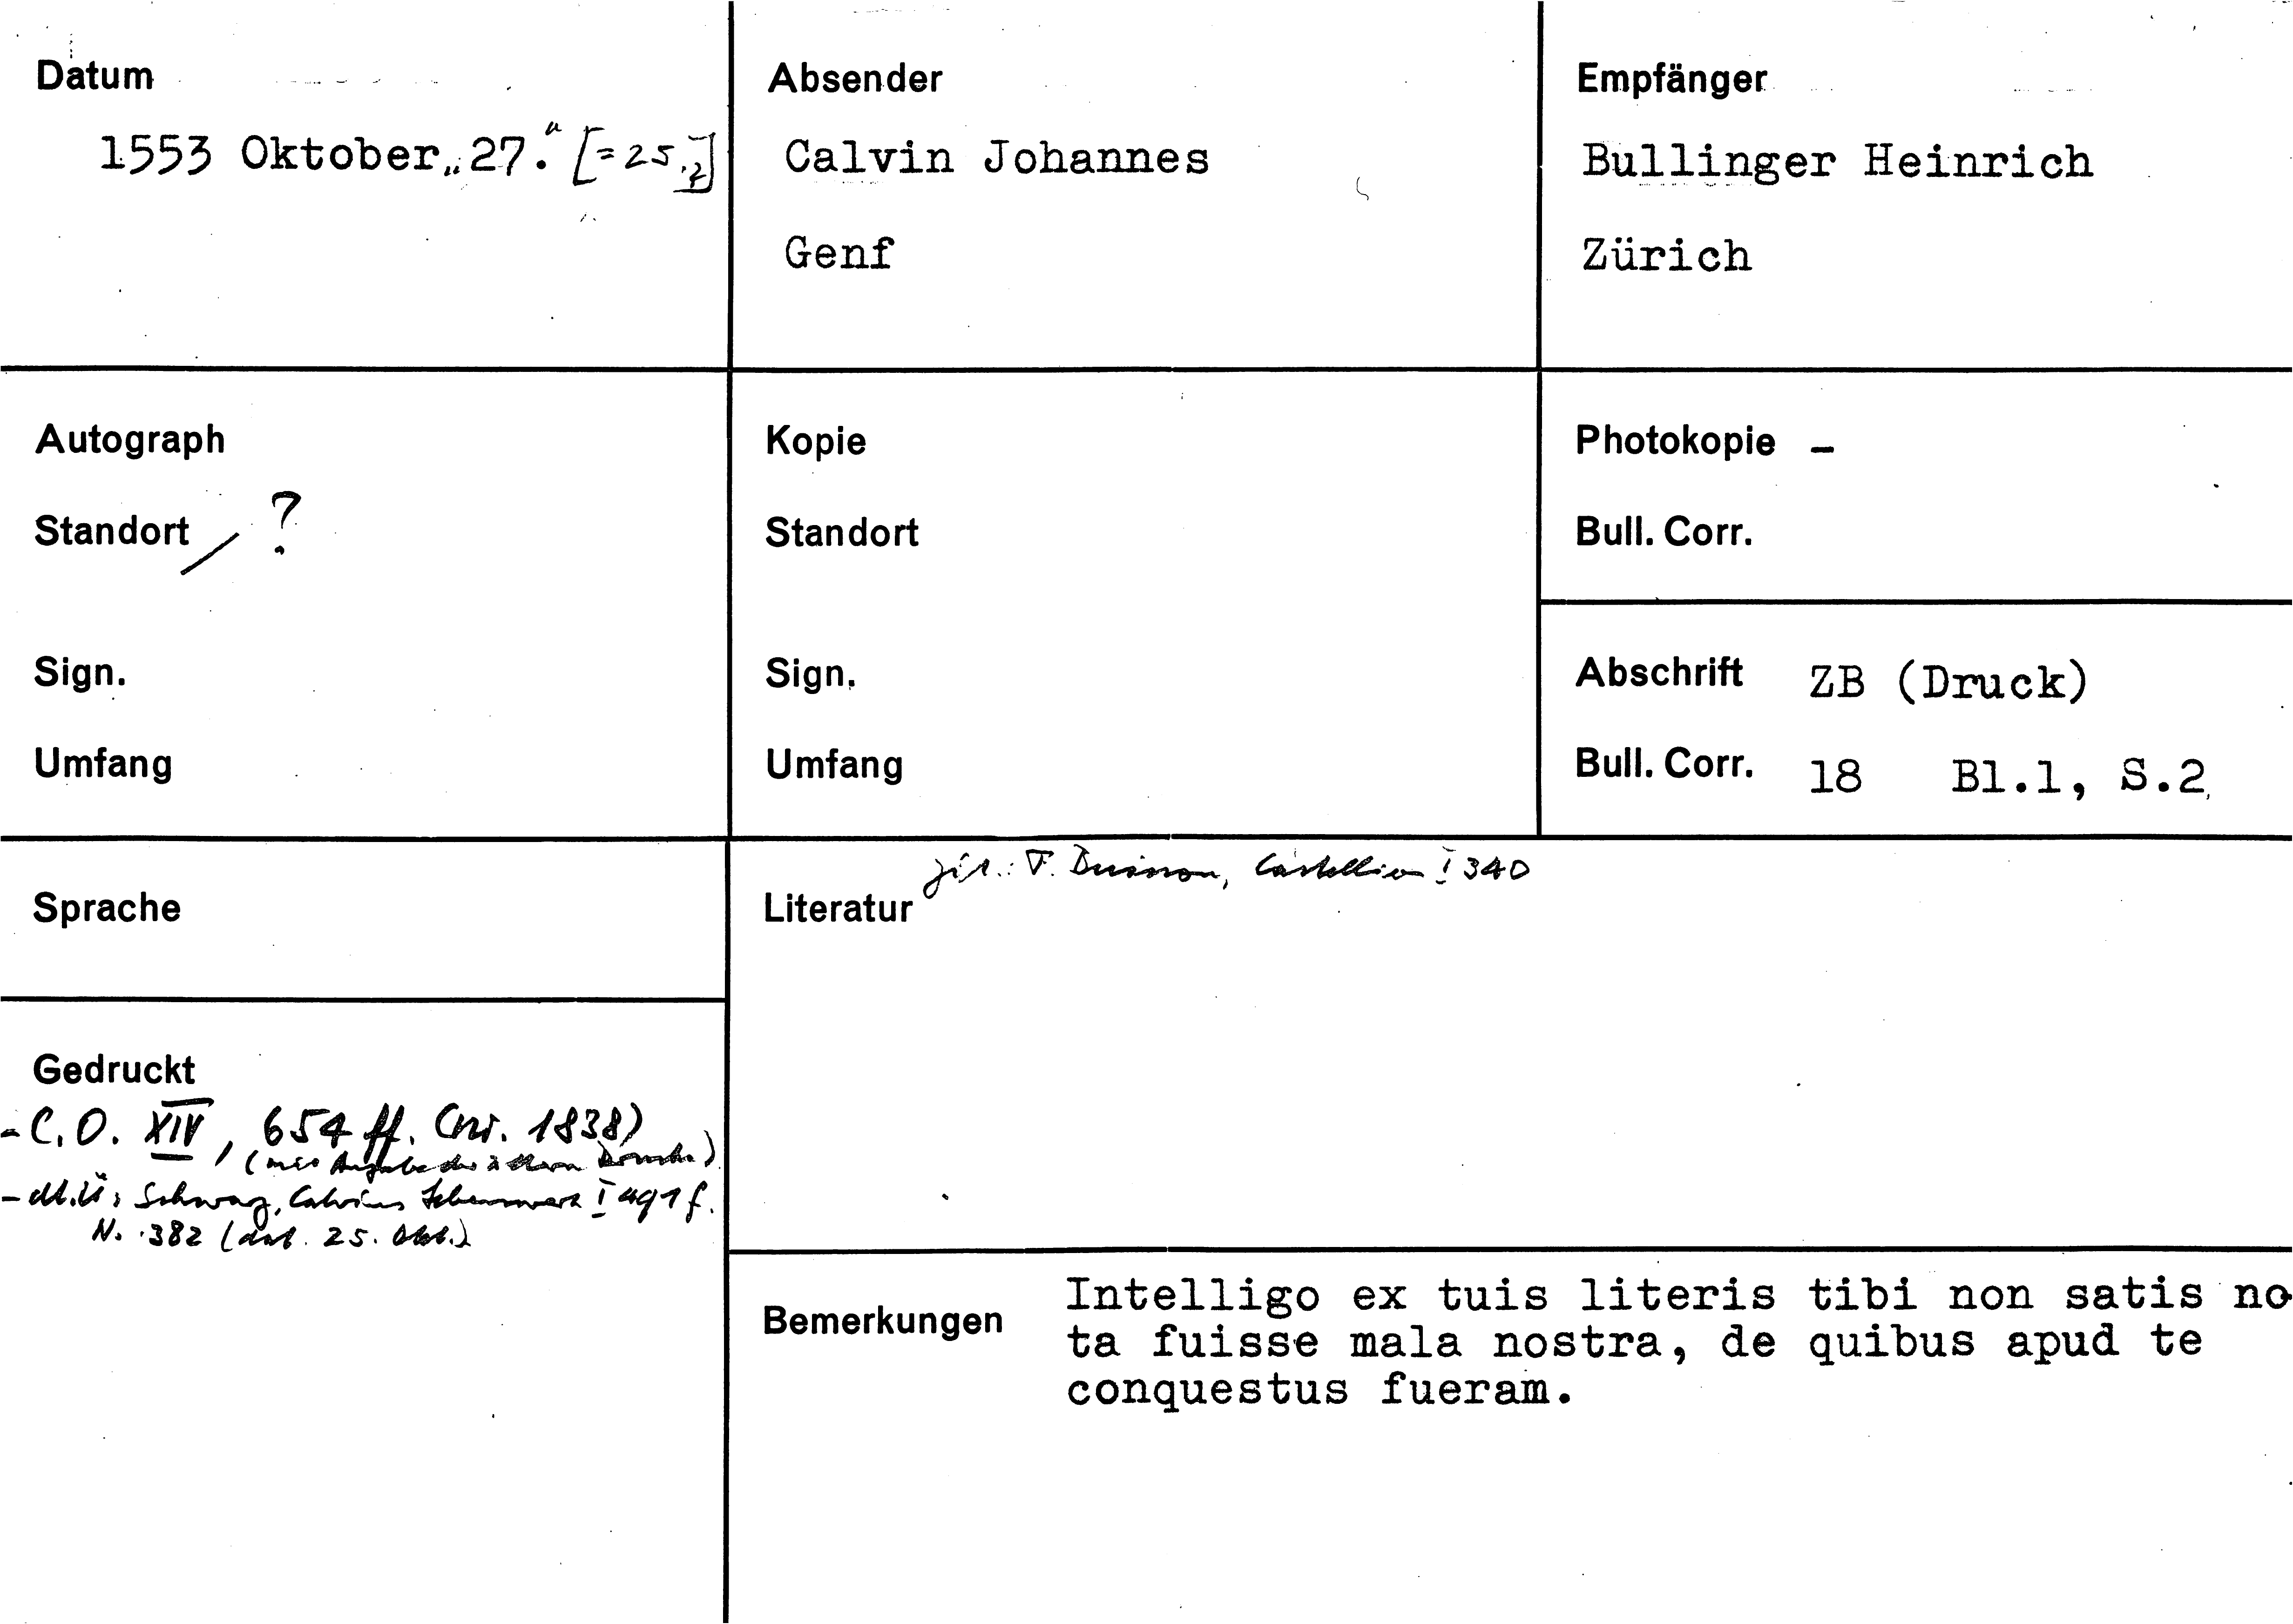 Datum
1553 Oktober „27.“ [=25.?]
Absender
Calvin Johannes
Genf
Empfänger
Bullinger Heinrich
Zürich
Autograph
Standort ?
Sign.
Umfang
Kopie
Standort
Sign.
Umfang
Photokopie -
Bull. Corr.
Abschrift ZB (Druck)
Bull. Corr. 18 Bl.1, S.2
Sprache
zit.: F. Buisson, Castellion I 340
Literatur
Gedruckt
- C.O. XIV, 654 ff. (nr. 1838)
(mit Angabe der ältern Drucke)
- dt. Ü: Schwarz, Calvins Lebenswerk I 491 f.
N. 382 (dat. 25. Okt.)
Bemerkungen
Intelligo ex tuis literis tibi non satis no
ta fuisse mala nostra, de quibus apud te
conquestus fueram.